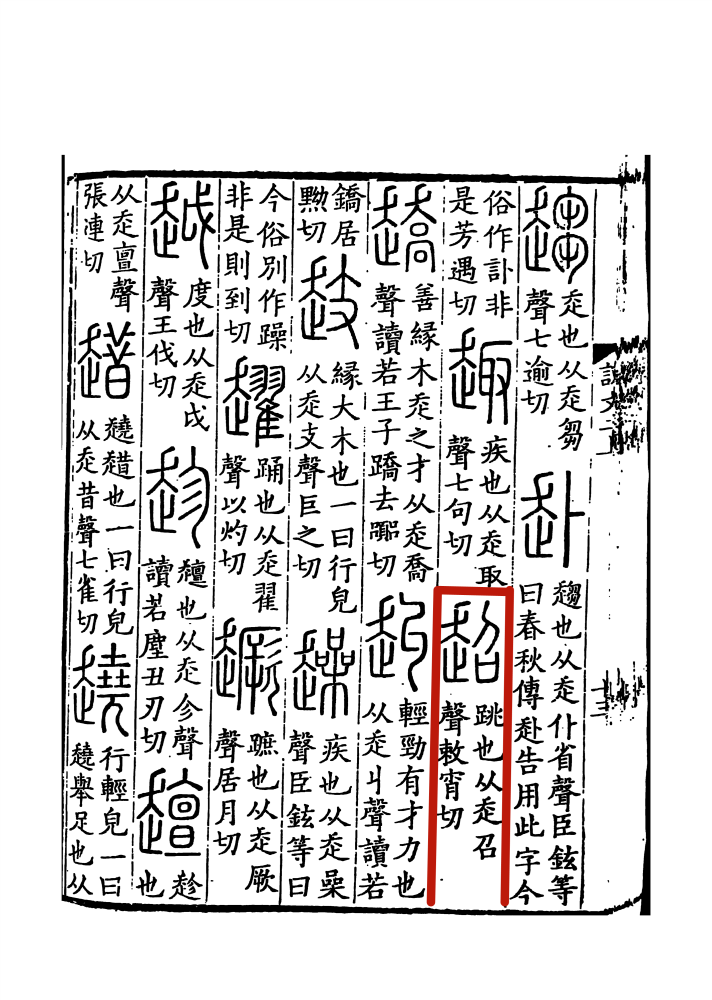 趨
走也从走芻
聲七逾切
赴
趨也从走仆省聲臣鉉等
曰春秋傳赴告用此字今
俗作訃非
是芳遇切
趣
疾也从走取
聲七句切
超
跳也从走召
聲敕宵切
趫
善緣木走之才从走喬
聲讀若王子蹻去嚻切
赳
輕勁有才力也
从走丩聲讀若
鐈居
黝切
𧺼
緣大木也一曰行皃
从走支聲巨之切
趮
疾也从走喿
聲臣鉉等曰
今俗別作躁
非是則到切
趯
踊也从走翟
聲以灼切
𧽸
蹠也从走厥
聲居月切
越
度也从走戉
聲王伐切
趁
𧾍也从走㐱聲
讀若塵丑刃切
𧾍
趁
也
从走亶聲
張連切
趞
趬趞也一曰行皃
从走昔聲七雀切
趬
行輕皃一曰
趬舉足也从